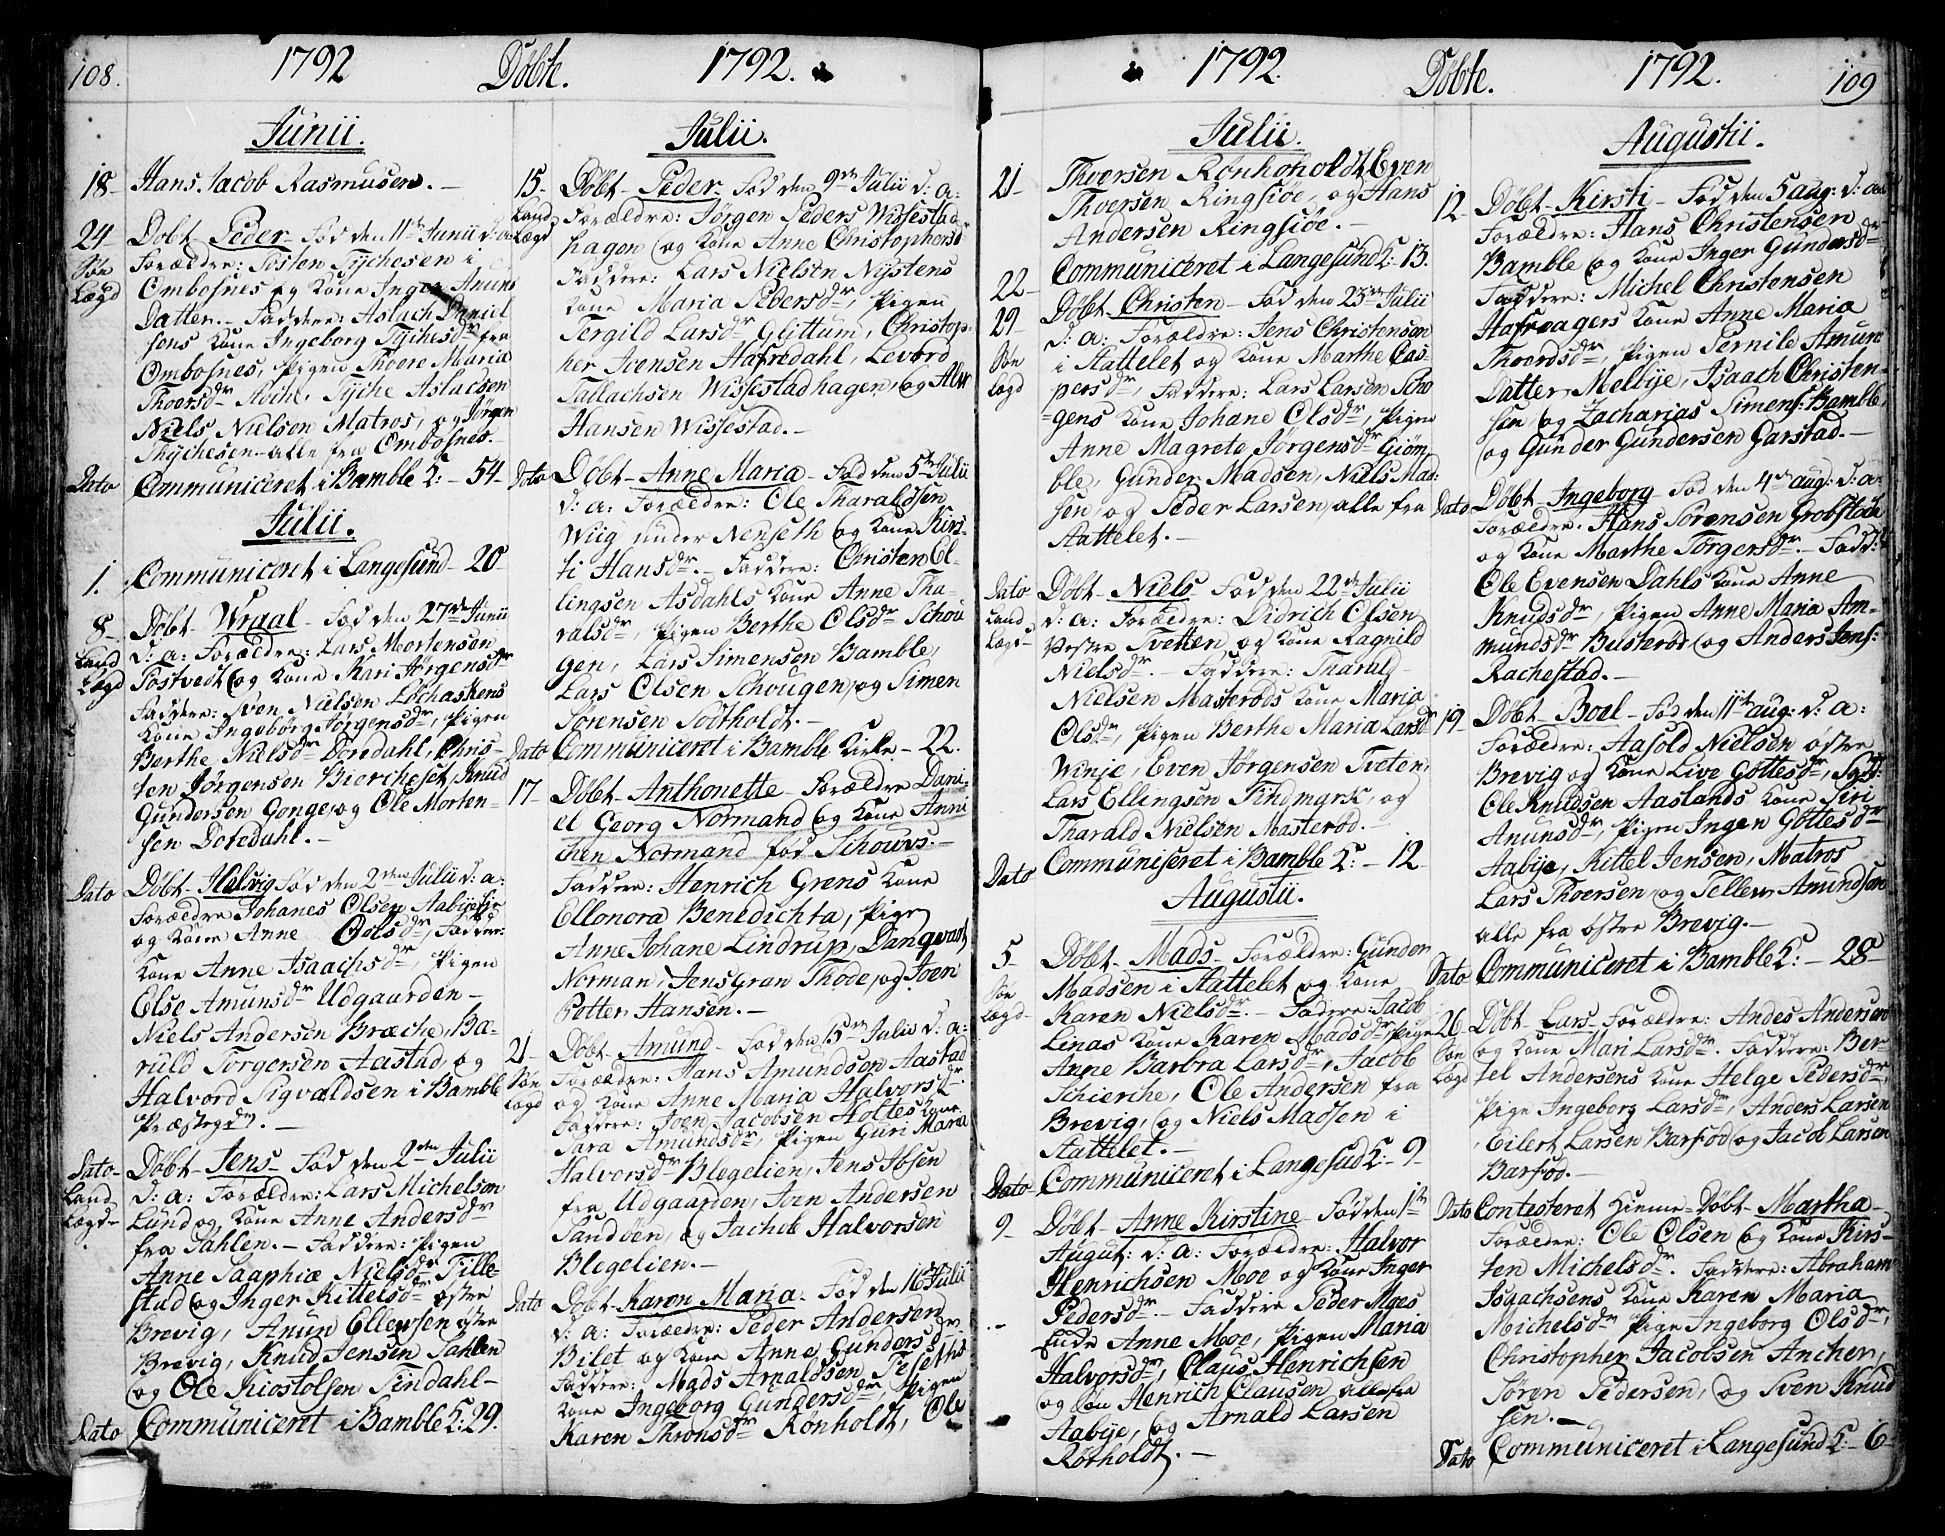 108. 1792 Döbte. 1792.
Junii.
18- Hans Jacob Rasmusen.-
24 Døbt Peder- Fød den 11te Junii d: a:
Søe Forældre: Tosten Tÿchesen i
Lægd Ombosnes og Kone Inger Anuns
Datter.- Faddere: Aslach Daniel
sens Kone Ingeborg Tÿchesdr fra
Ombosnes, Pigen Thoere Maria
Thoersdr Aschi, Tÿche Aslacsen
Niels Nielsen Matros, og Jörgen
Thÿchesen- alle fra Ombosnes.
Dato Communiceret i Bamble K:- 54-
Julii.
1. Communiceret i Langesund- 20
8- Døbt- Wraal- Fød den 27de Junii
Land d: a: Forældre: Lars Mortensen
Lægd Tostvedt og Kone Kari Jörgensdr
Faddere: Sven Nielsen Löchaskens
Kone Ingebörg Jørgensdr, Pigen
Berthe Nielsdr Doredahl, Chris-
ten Jørgensen Biercheset, Knud
Gundersen Gonge, og Ole Morten-
sen Doredahl.-
Dato Döbt- Helvig Fød den 2den Julii d: a:
Forældre Johanes Olsen Aabÿesie
og Kone Anne Oolsdr, Fadder:
Kone Anne Isaachsdr, Pigen
Else Amunsdr Udgaarden-
Niels Andersen Bræche, Ba-
ruld Torgersen Aastad, og
Halvord Sigvaldsen i Bamble
Præstegdr.-
Dato- Døbt- Jens- Fød den 2den Julii
Land- d: a: Forældre: Lars Michelsen
Lægd- Lund og Kone Anne Andersdr
fra Sahlen.- Faddere: Pigen
Anne Saaphie Nielsdr Tille-
stad og Inger Kittelsdr østre
Brevig, Anun Ellefsen østre
Brevig, Knud Jensen Sahlen
og Ole Kiostolsen Tindahl-
Dato Communiceret i Bamble K: 29.
Julii.
15- Döbt- Peder- Fød den 9de Julii d: a:
Land Forældre: Jörgen Peders Wissestad
Lægd hagen og Kone Anne Christophersdr
Faddere: Lars Nielsen Nÿstens
Kone Maria Pedersdr, Pigen
Tergild Larsdr Glittum, Christop-
her Ivensen Hafredahl, Levord
Tallachsen Wissestadhagen, og Alvr
Hansen Wissestad.-
Dato Døbt- Anne Maria- Fød den 5te Julii
d: a: Forældre: Ole Tharaldsen
Wiig under Nenseth og Kone Kirs-
ti Hansdr.- Faddere: Christen El-
lingsen Asdahls Kone Anne Tha-
ralsdr, Pigen Berthe Olsdr Schou
gen, Lars Simensen Bamble,
Lars Olsen Schougen, og Simen
Sörensen Todtholdt.-
Dato Communiceret i Bamble Kirke- 22.
17- Döbt- Anthonette- Forældre Dani-
el Georg Normand og Kone Anni
chen Normand fød Schouvs.-
Faddere: Henrich Grens Kone
Ellonora Benedichta, Pige
Anne Johane Lindrup, Danqvart
Norman, Jens Gran Thode, og Joen
Petter Hansen.-
21- Döbt- Amund- Fød den 15de Julii d: a:
Søe Forældre: Hans Amundsen Aastad
Lægd og Kone Anne Maria Halvorsdr.
Faddere: Joen Jacobsen Holtes Kone
Sara Amundsdr, Pigen Guri Maria
Halvorsdr Blegelien, Jens Ibsen
fra Udgaarden, Iver Andersen
Sandøen, og Jachob Halvorsen
Blegelien.-
Dato Döbt- Karen Maria- Fød den 16 Julii
d: a: Forældre: Peder Andersen
Bilet og Kone Anne Gundersdr
Faddere: Mads Arnaldsen Teseths
Kone Ingeborg Gundersdr, Pigen
Karen Thronsdr Rönholdt, Ole
1792. Döbte. 1792. 109
Julii.
21- Thversen Rönhoholdt, Even
Thversen Ringsiøe, og Hans
Andersen Ringsiøe.-
22- Communiceret i Langesund K: 13.
29- Döbt- Christen- Fød den 23de Julii
Søe d: a: Forældre: Jens Christensen
Lægd i Stattelet og Kone Marthe Cas-
persdr, Faddere: Lars Larsen Scho
=gens Kone Johane Olsdr, Pigen
Anne Magrete Jörgensdr Giöm-
ble, Gunder Madsen, Niels Mad-
sen, og Peder Larsen, alle fra
Stattelet.-
Dato Döbt- Niels- Fød den 22de Julii
Land d: a: Forældre: Didrich Olsen
Lægd- Vestre Tvetten, og Kone Ragnild
Nielsdr.- Faddere: Tharal-
Nielsen Masterøds Kone Maria
Olsdr, Pigen Berthe Maria Larsdr
Winje, Even Jörgensen Tveten,
Lars Ellingsen Findmark, og
Tharald Nielsen Masterød.-
Dato Communiseret i Bamble K:- 12
Augustii.
5- Döbt- Mads- Forældre: Gunder
Søe Madsen i Stattelet og Kone
Lægd- Karen Nielsdr.- Fadere: Jacob
Linas Kone Karen Madsdr, Pige
Anne Barbra Larsdr, Jacob
Schierche, Ole Andersen fra
Brevig, og Niels Madsen i
Stattelet.-
Dato- Communiceret i Langesud K:- 9-
9- Döbt- Anne Kirstine- Fød den 1te
Augut: d: a: Forældre: Halvor
Henrichsen Moe og Kone Inger
Pedersdr.- Faddere Peder Moes
Enke Anne Moe, Pigen Maria
Halvorsdr, Claus Henrichsen
og Søn Henrich Clausen alle fra
Aabÿe, og Arnald Larsen
Røtholdt.-
Augustii.
12- Döbt- Kirsti- Fød den 5 aug: d: a:
Forældre: Hans Christensen
Bamble og Kone Inger Gundersdr-
Faddere: Michel Christensen
Hafreagers Kone Anne Maria
Thoerdsdr, Pigen Pernile Amun
Datter Melbÿe, Isaach Christen-
sen og Zacharias Simens: Bamble,
og Günder Gundersen Garstad.-
Dato Döbt- Ingeborg- Fød den 4de aug: d: a:
Forældre: Hans Sörensen Grobstok
og Kone Marthe Torgersdr.- Fadd:
Ole Evensen Dahls Kone Anne
Knudsdr, Pigen Anne Maria Am-
mundsdr Busterød og Anders Jens:
Rachestad.-
19- Döbt- Boel- Fød den 11te aug: d: a:
Forældre: Aasold Nielsen østre
Brevig og Kone Live Gottesdr, Fadd:
Ole Knudsen Aaslands Kone Siri
Anunsdr, Pigen Ingen Göttesdr
Aabÿe, Kittel Jensen, Matros
Lars Thoersen og Tellev Amundsen
alle fra østre Brevig.-
Dato Communiceret i Bamble K:- 28-
26 Döbt- Lars- Forældre: Andes Andersen
Søe og Kone Mari Larsdr. Faddere: Ber-
Lægd tel Andersens Kone Helge Pedersdr,
Pige Ingeborg Larsdr, Anders Larsen
Eilert Larsen Barfod og Jacob Larsen
Barfod.-
Dato Contesteret Hieme- Døbt- Martha-
Forældre: Ole Olsen og Kone Kirs-
ten Michelsdr. Faddere: Abraham
Isgachsens Kone Karen Maria
Michelsdr, Pige Ingeborg Olsdr,
Christopher Jacobsen Ancher,
Søren Pedersen, og Sven Knud
sen.-
Dato Communiceret i Langesund K:- 6-